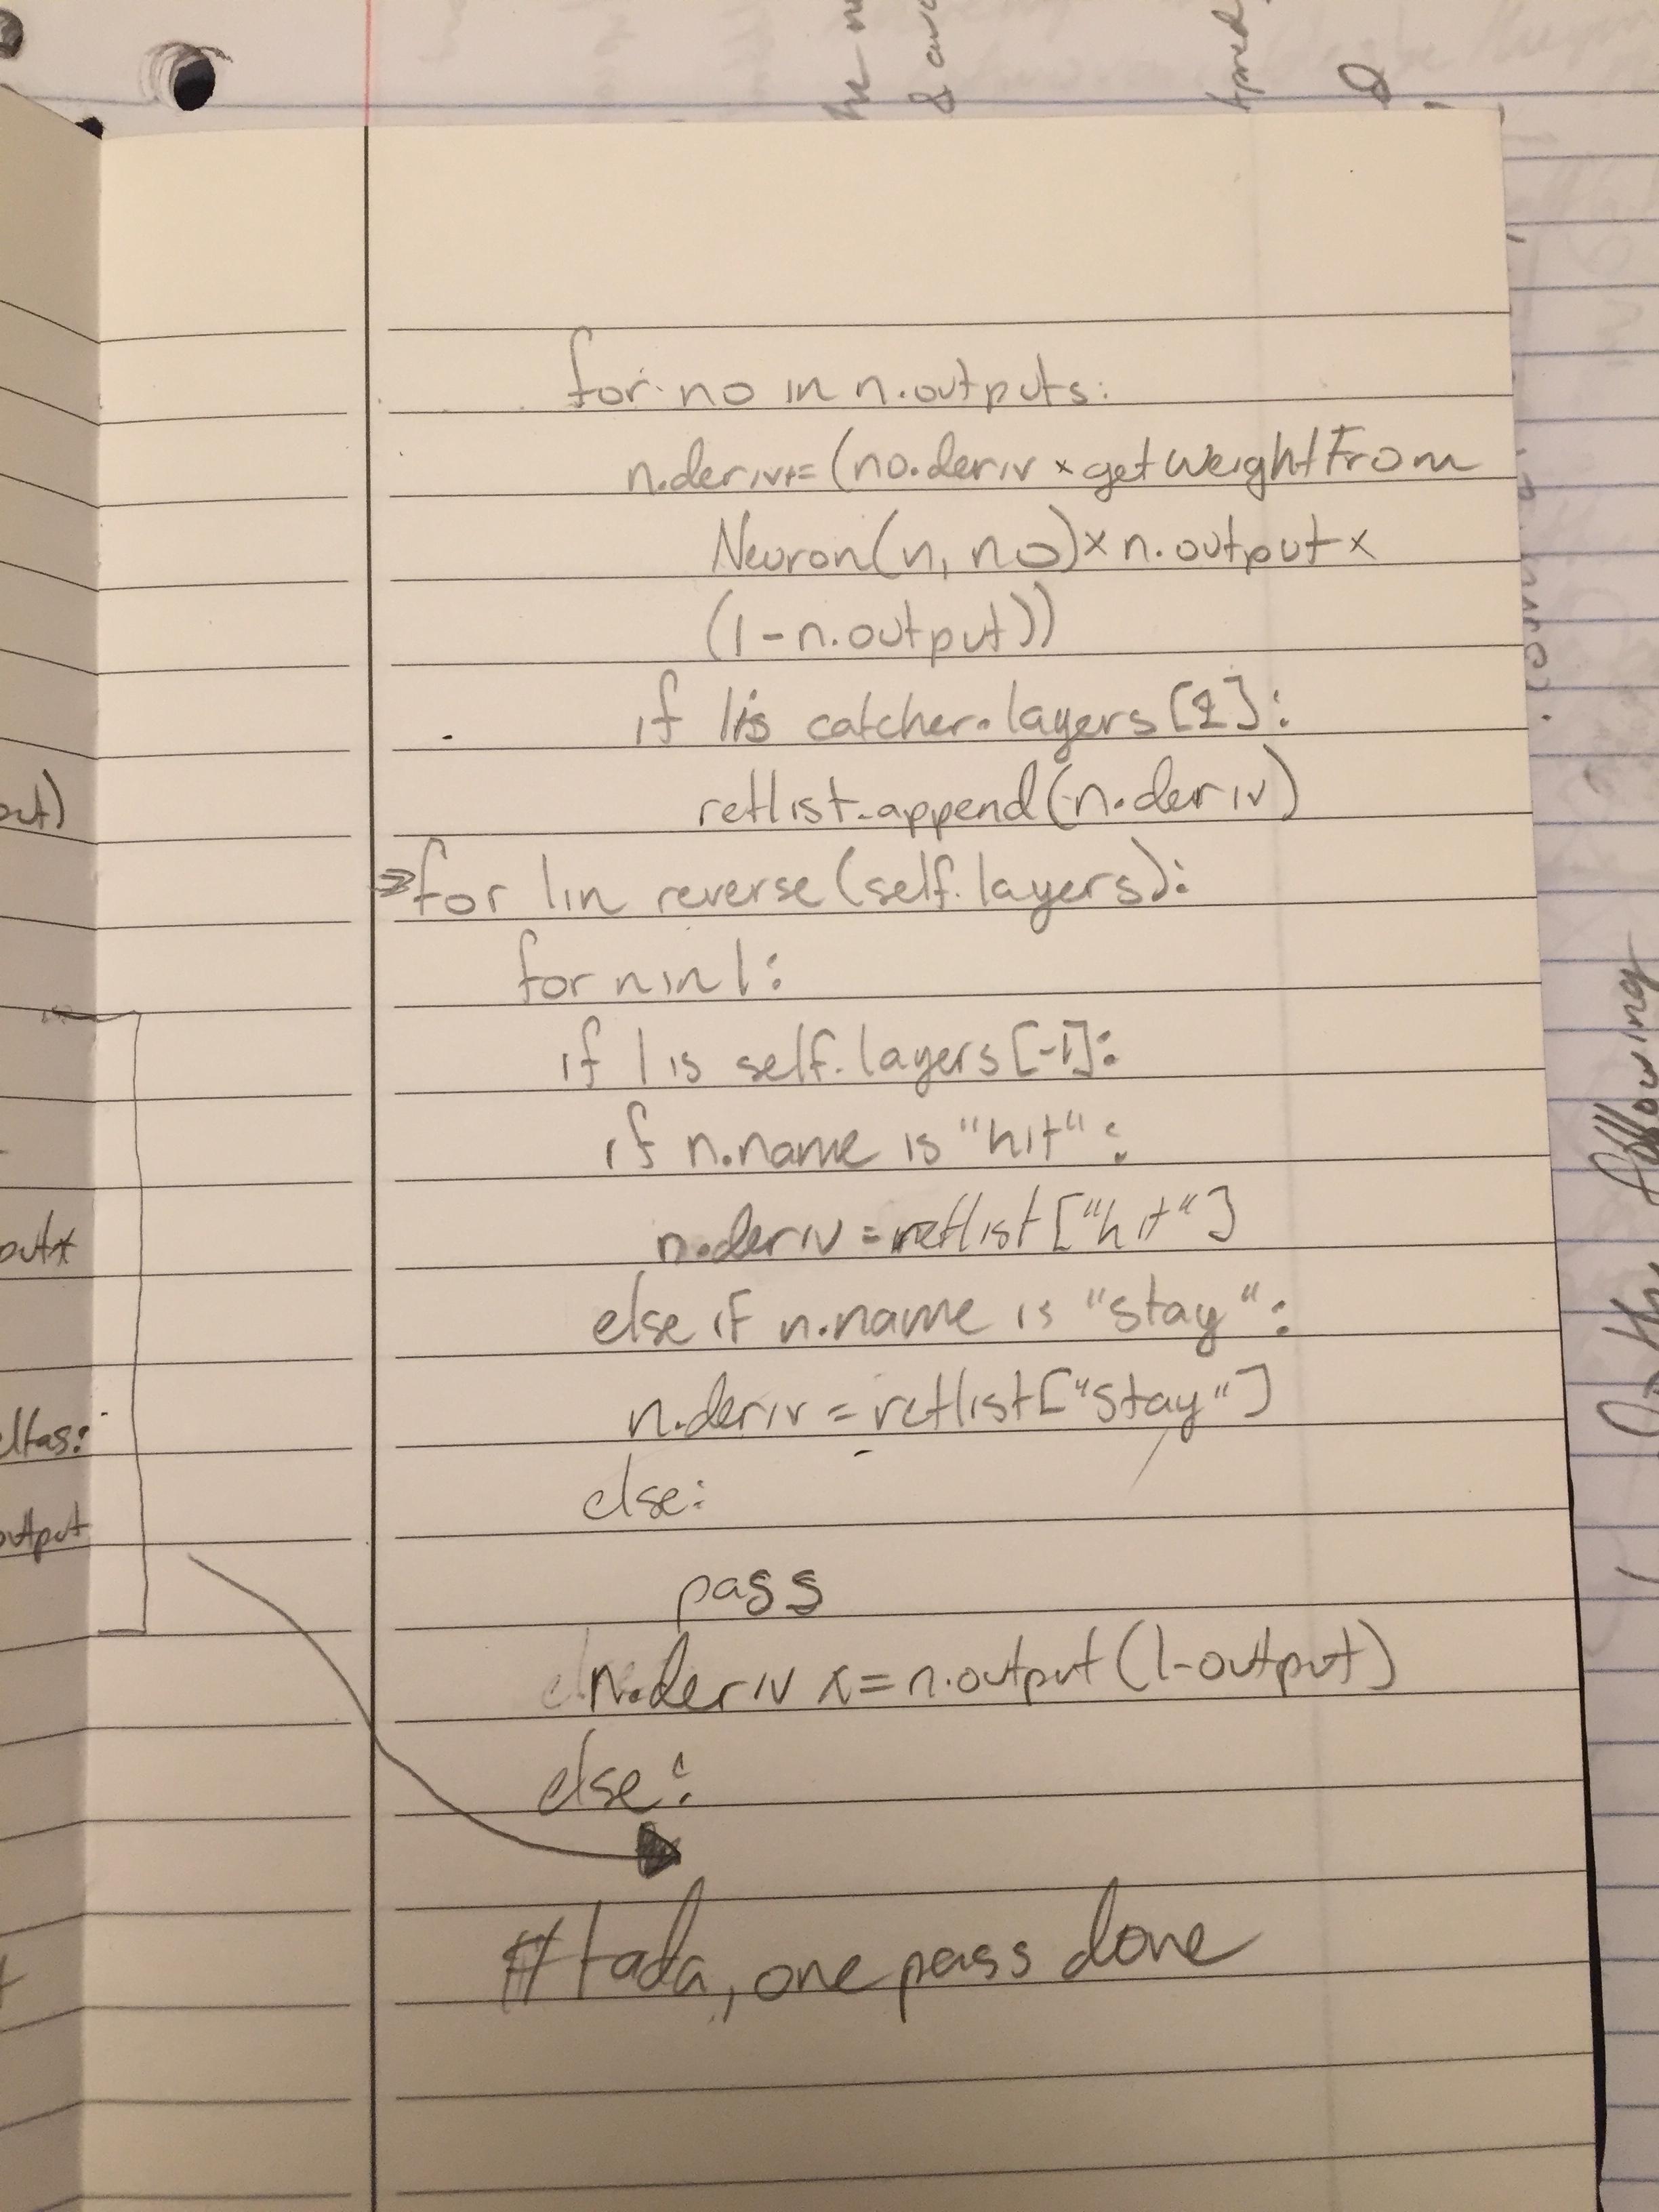 for no in n.outputs:
n.deriv+= (no.deriv × getWeightFrom
Neuron(n, no) × n.output ×
(1-n.output))
if l is catcher.layers[2]:
retlist.append(n.deriv)
for l in reverse(self.layers):
for n in l:
if l is self.layers[-1]:
if n.name is "hit":
n.deriv = retlist["hit"]
else if n.name is "stay":
n.deriv = retlist["stay"]
else:
pass
n.deriv x= n.output(1-output)
else:
#tada, one pass done
out)
out*
eltas:
output
following